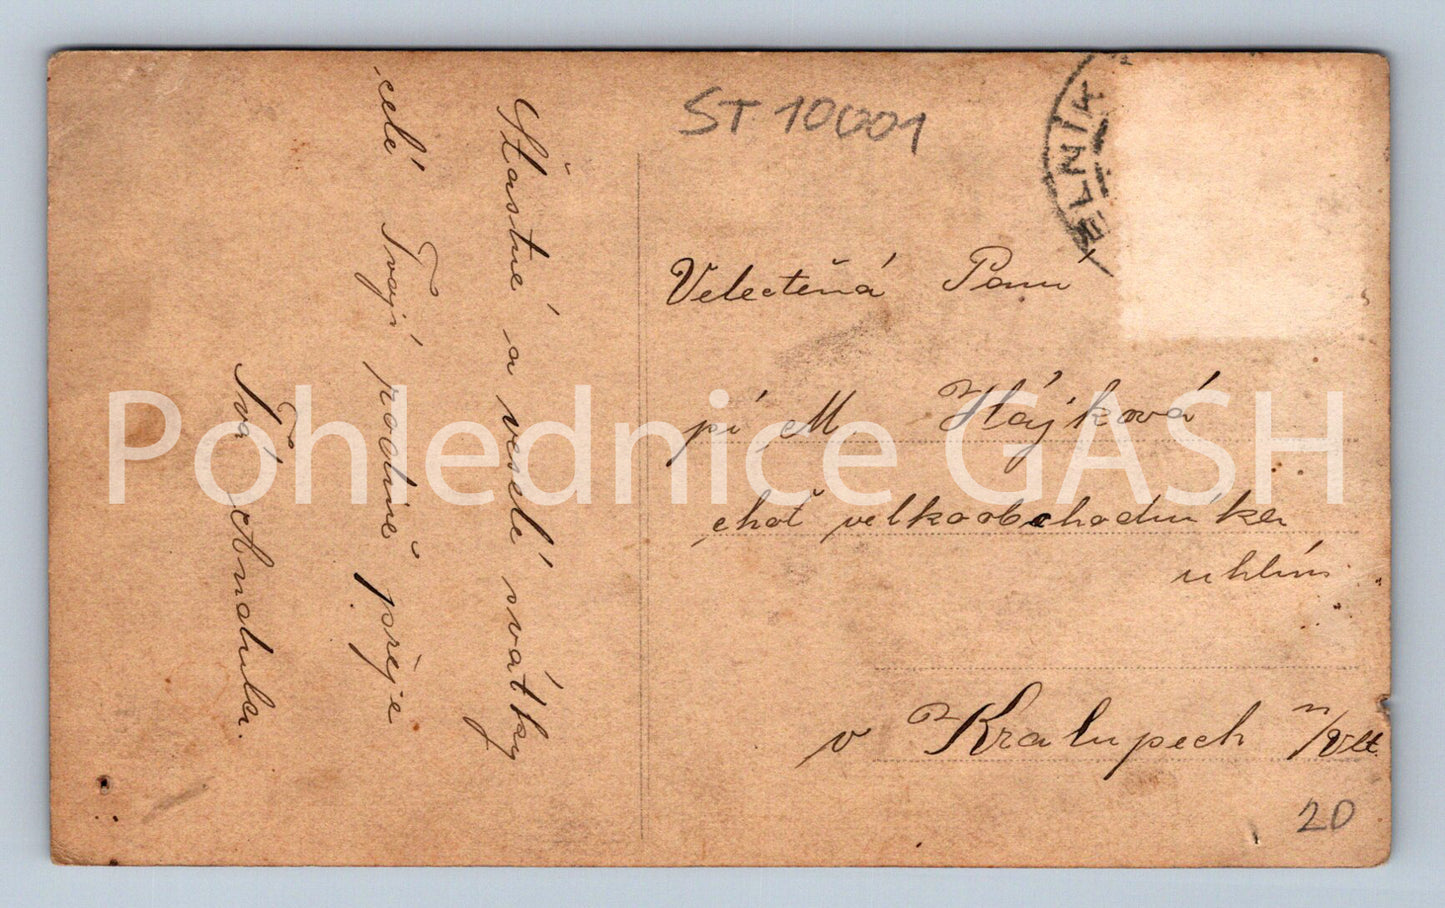 ST 10001
ĚLNÍK
Šťastné a veselé svátky
celé Tvojí rodině přeje
Tvá Andulka.
Velectěná Paní
pí M. Hájková
choť velkoobchodníka
uhlím
v Kralupech n/Vlt.
20
Pohlednice GASH